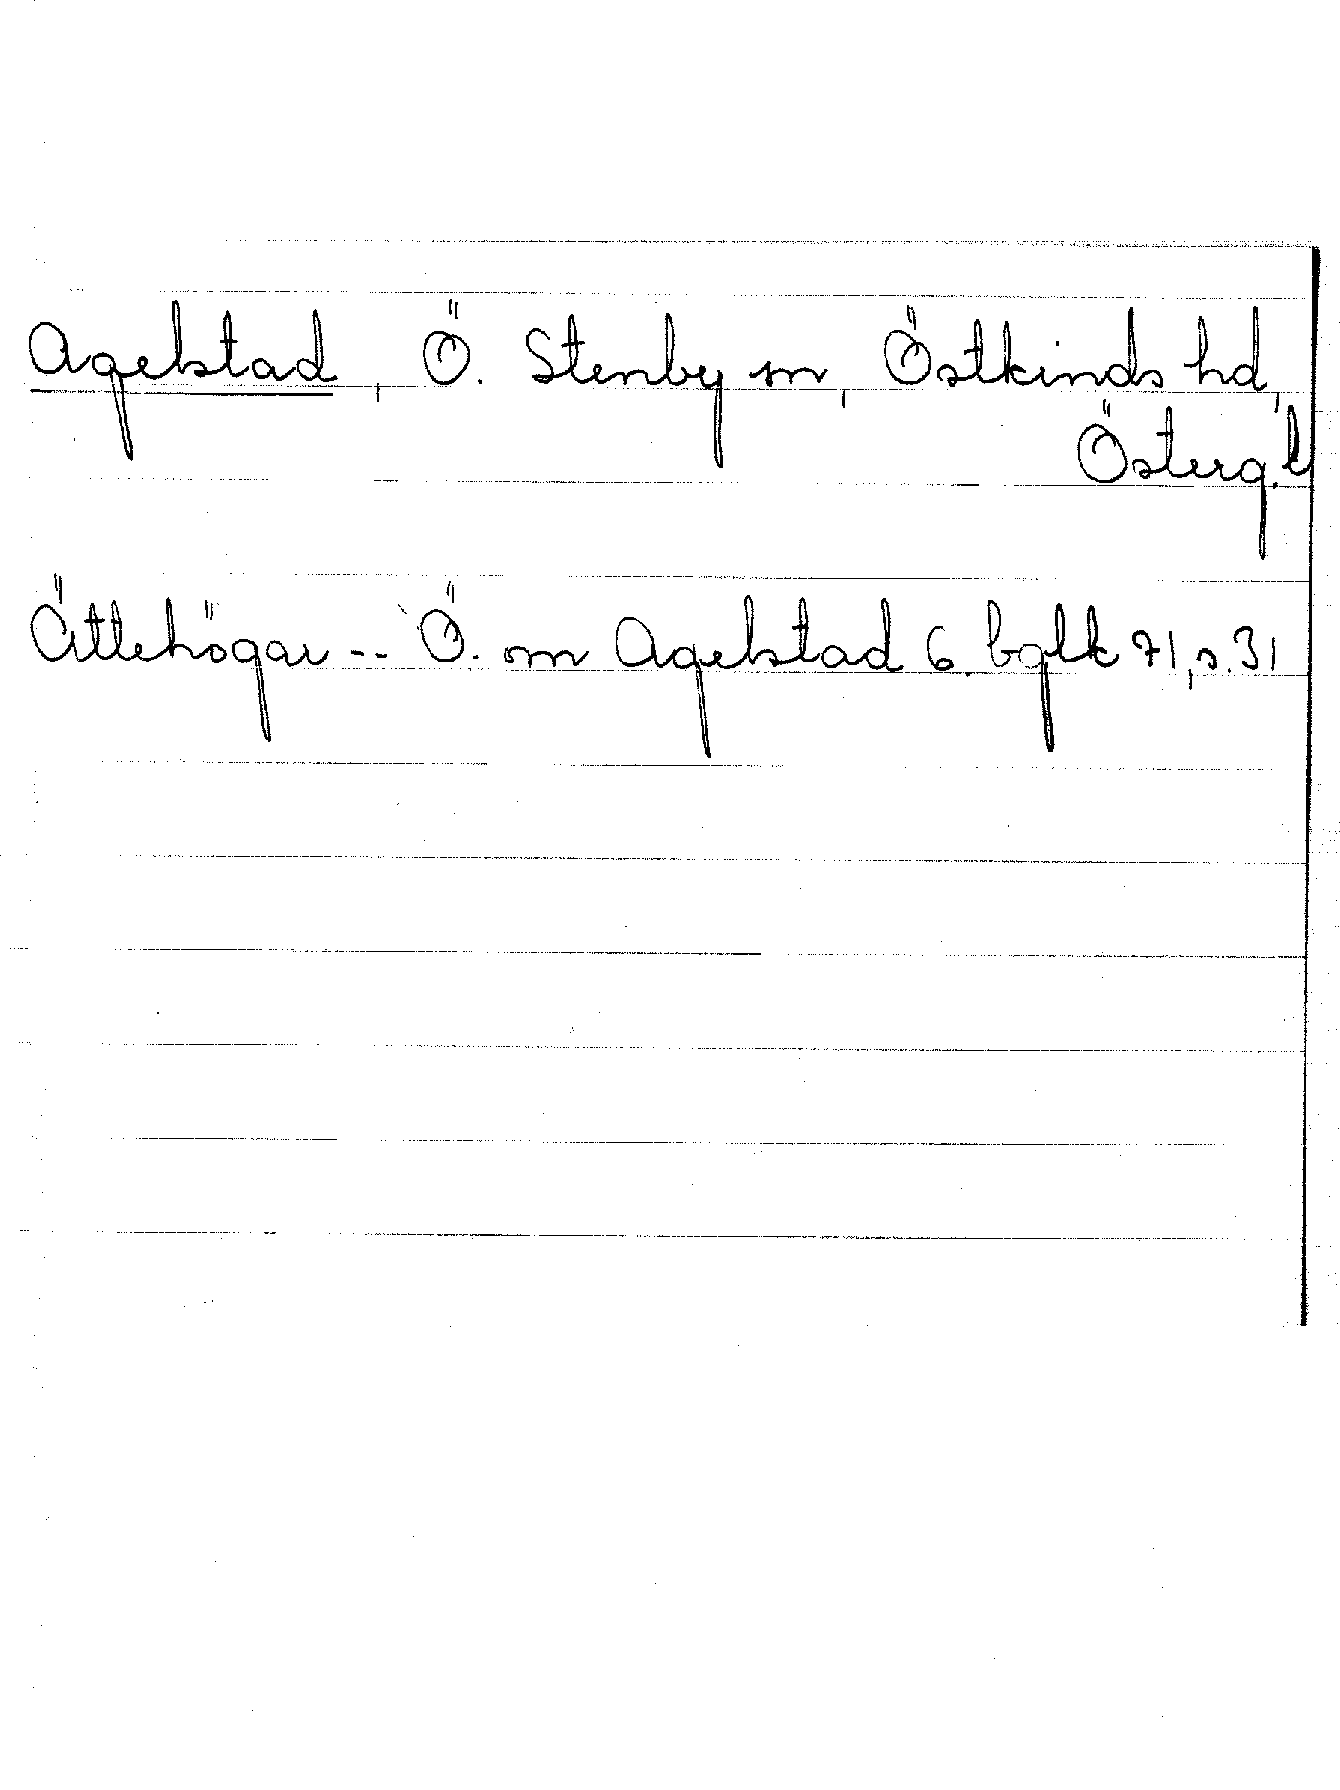 Agelstad, Ö. Stenby sn, Östkinds hd,
Österg.l
Ättehögar -- Ö. om Agelstad 6. bglk 71, s. 31